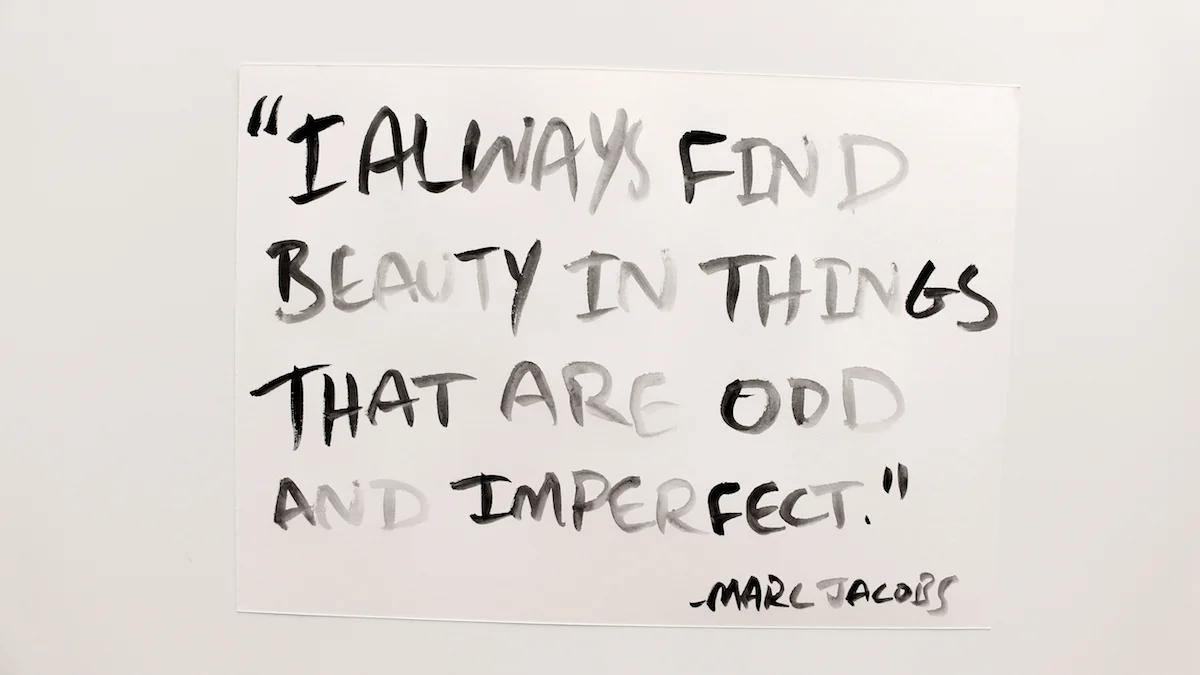 "I ALWAYS FIND
BEAUTY IN THINGS
THAT ARE ODD
AND IMPERFECT."
-MARC JACOBS